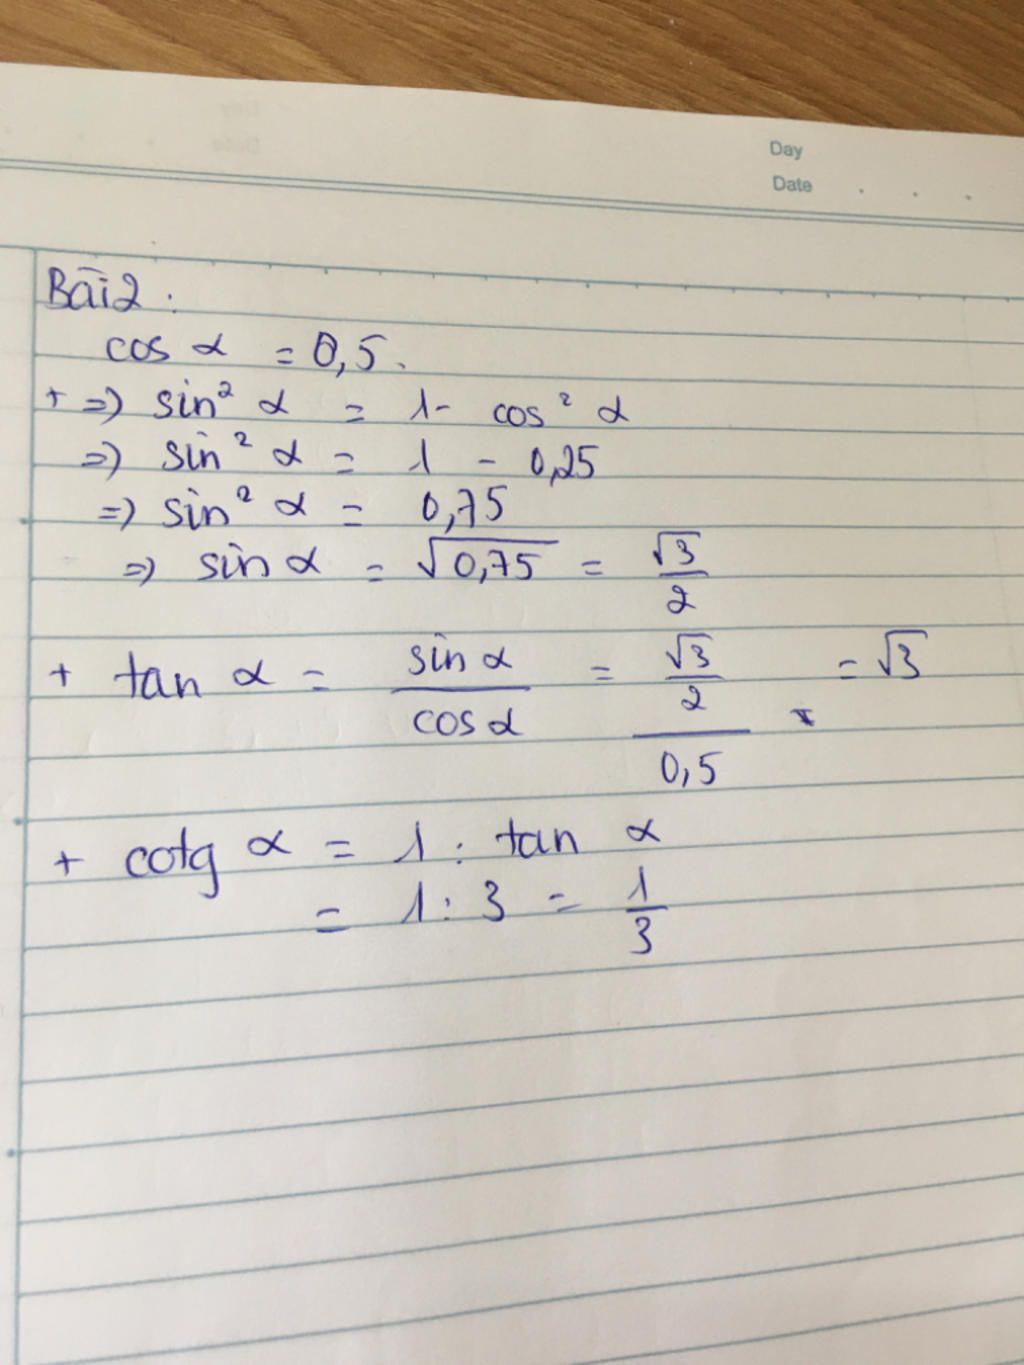 Day
Date
Bài 2 :
cos α = 0,5.
+ => sin² α = 1 - cos² α
=> sin² α = 1 - 0,25
=> sin² α = 0,75
=> sin α = √0,75 = √3/2
+ tan α = sin α / cos α = (√3/2) / 0,5 = √3
+ cotg α = 1 : tan α
= 1 : 3 = 1/3